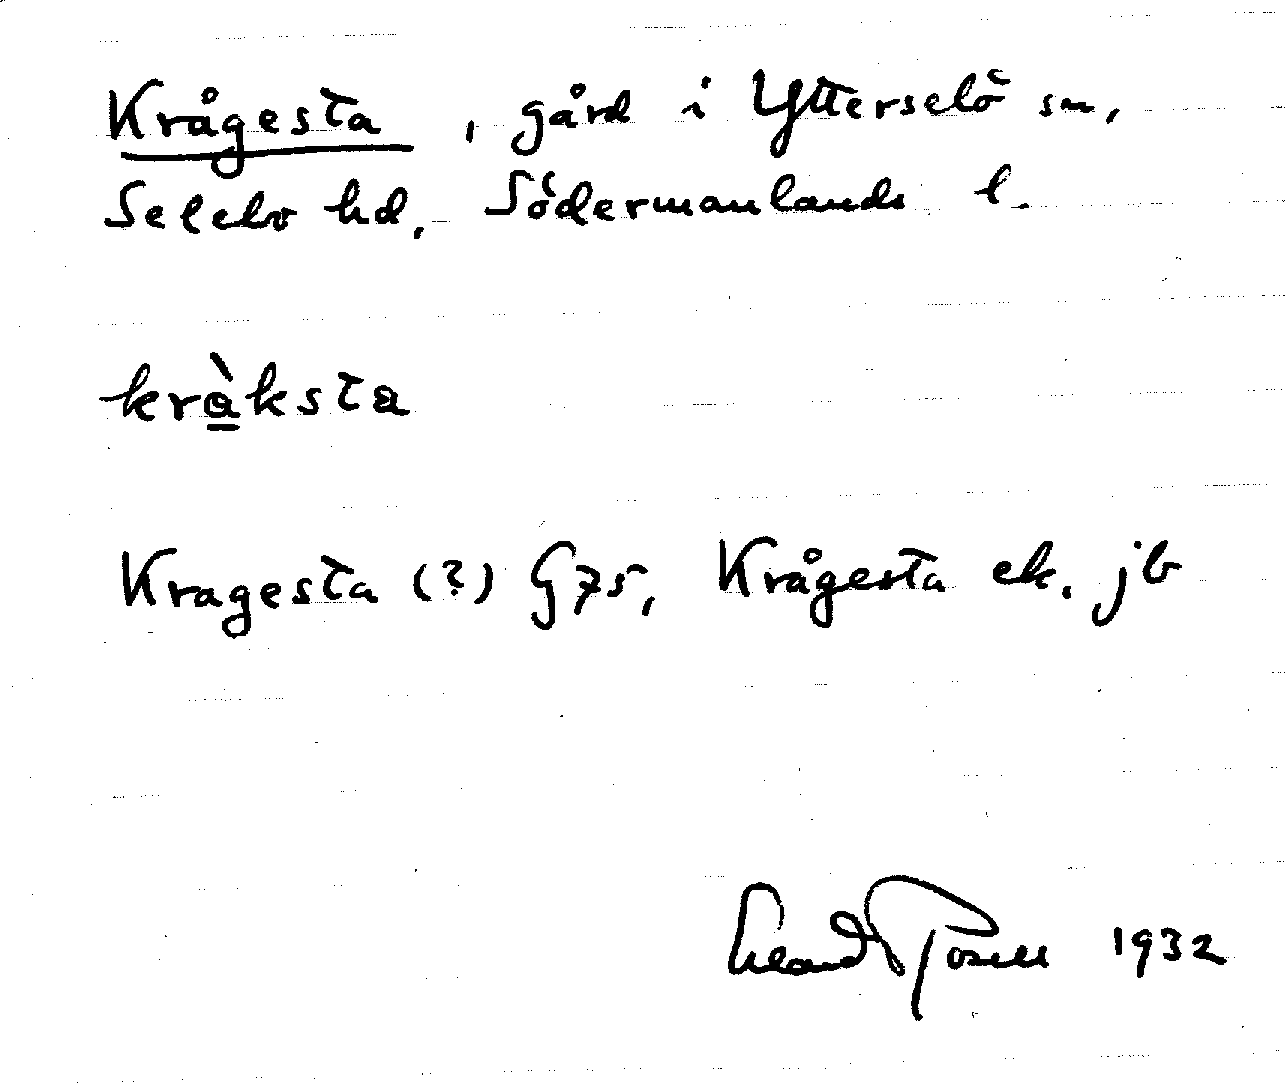 Krågesta, gård i Ytterselö sn,
Selebo hd, Södermanlands l.
kràksta
Kragesta (?) G75, Krågesta ek. jb
Erland Rosell 1932